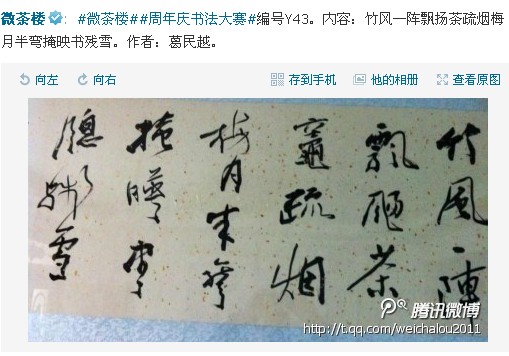 微茶楼：#微茶楼##周年庆书法大赛#编号Y43。内容：竹风一阵飘扬茶疏烟梅
月半弯掩映书残雪。作者：葛民越。
向左 向右 存到手机 他的相册 查看原图
竹風一陣
飄颺茶
竈疏烟
梅月半彎
掩暎書
牕殘雪
腾讯微博
http://t.qq.com/weichalou2011